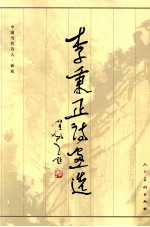 中国当代名人·画家
李秉正诗画选
人民美术出版社